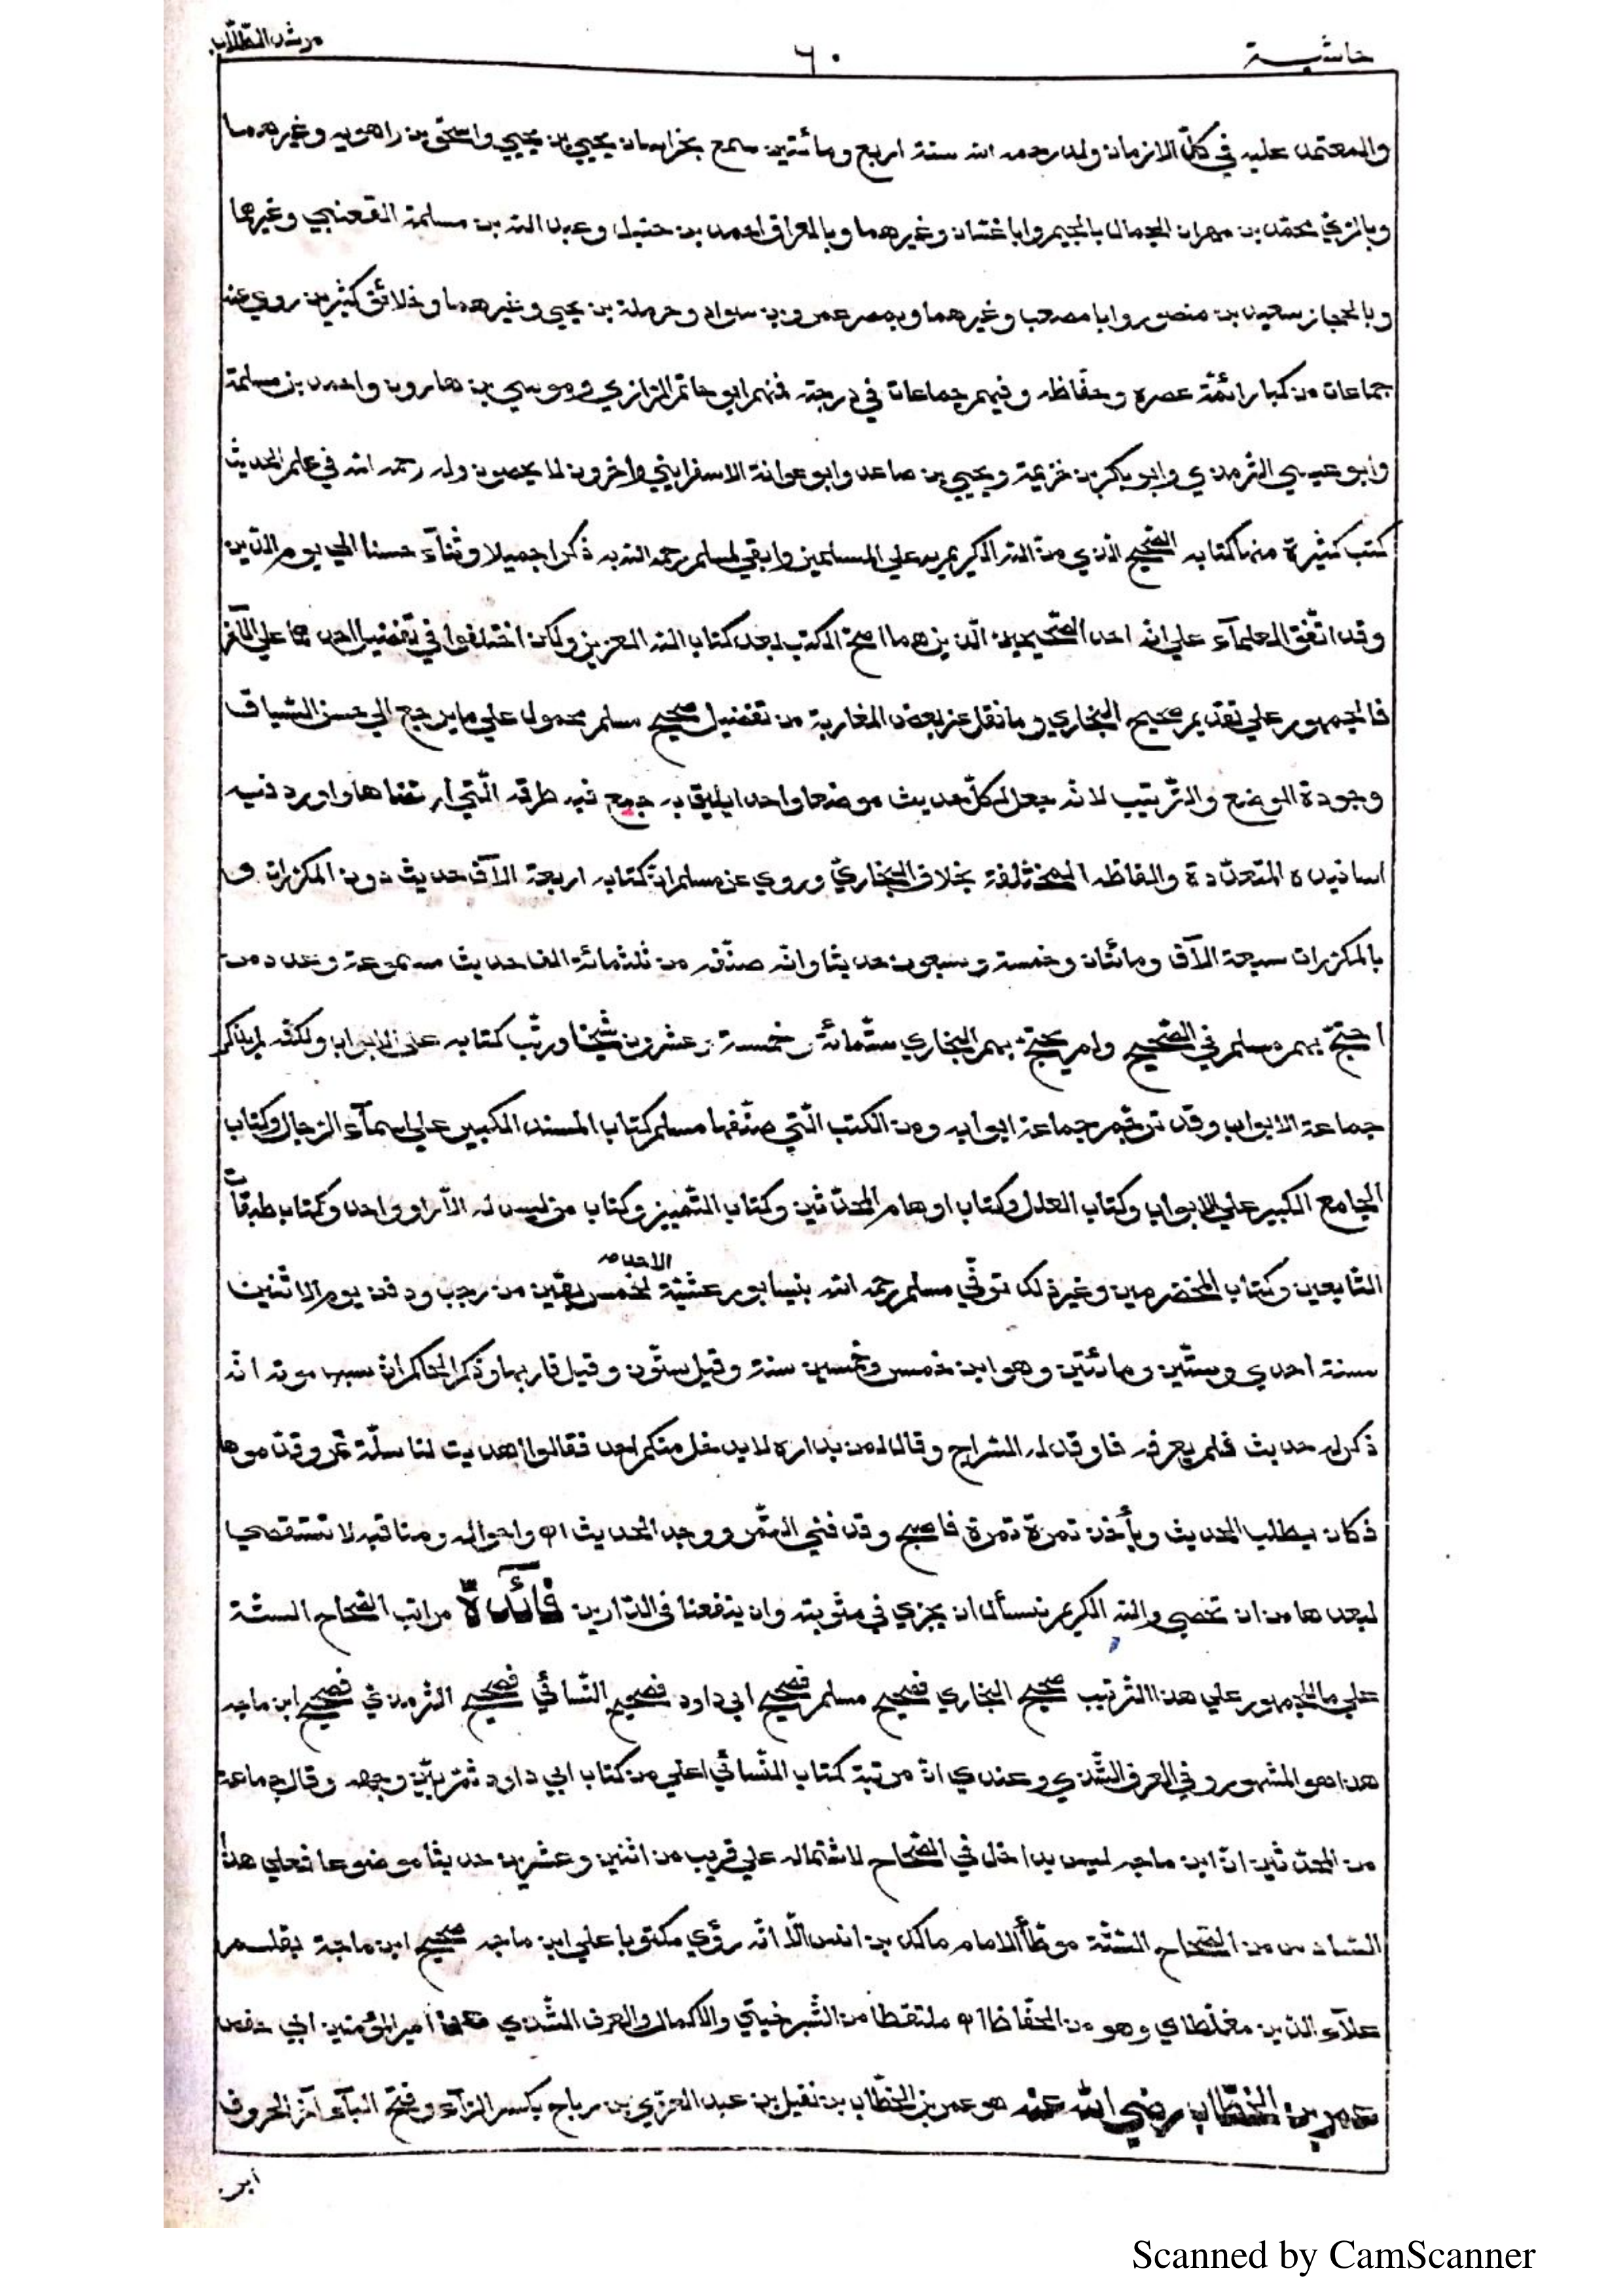 حاشية ٦٠ مرشد الطّلّاب
والمعتمد عليه في كلّ الازمان ولد رحمه الله سنة اربع ومائتين سمع بخراسان يحيي بن يحيي واسحٰق بن راهويه وغيرهما
وبالرّيّ محمّد بن مهران الجمال بالجيم وابا غسّان وغيرهما وبالعراق احمد بن حنبل وعبد الله بن مسلمة القعنبي وغيرهما
وبالحجاز سعيد بن منصور وابا مصعب وغيرهما وبمصر عمرو بن سواد وحرملة بن يحيي وغيرهما وخلائق كثيرين روي عنه
جماعات من كبار ائمّة عصره وحفّاظه وفيهم جماعات في درجته فمنهم ابو حاتم الرّازي وموسي بن هارون واحمد بن مسلمة
وابو عيسي التّرمذي وابو بكر بن خزيمة ويحيي بن صاعد وابو عوانة الاسفرايني واخرون لا يحصون وله رحمه الله في علم الحديث
كتب كثيرة منها كتابه الصّحيح الّذي منّ الله الكريم به علي المسلمين وابقي لمسلم رحمه الله به ذكرا جميلا وثنآء حسنا الي يوم الدّين
وقد اتّفق العلمآء علي انّه احد الصّحيحين الّذين هما اصحّ الكتب بعد كتاب الله العزيز ولكن اختلفوا في تفضيل احدهما علي الآخر
فالجمهور علي تقديم صحيح البخاري وما نقل عن بعض المغاربة من تفضيل صحيح مسلم محمول علي ما يرجع الي حسن السّياق
وجودة الوضع والتّرتيب لانّه جعل لكلّ حديث موضعا واحدا يليق به جمع فيه طرقه الّتي ارتضاها واورد فيه
اسانيده المتعدّدة والفاظه المختلفة بخلاف البخاريّ وروي عن مسلم انّ كتابه اربعة الآف حديث دون المكرّرات و
بالمكرّرات سبعة الآف ومائتان وخمسة وسبعون حديثا وانّه صنّفه من ثلثمائة الف حديث مسموعة وعدد من
احتجّ بهم مسلم في الصّحيح ولم يحتجّ بهم البخاري ستّمائة وخمسة وعشرون شيخا ورتّب كتابه علي الابواب ولكنّه لم يذكر
جماعة الابواب وقد ترجم جماعة ابوابه ومن الكتب الّتي صنّفها مسلم كتاب المسند الكبير علي اسمآء الرّجال وكتاب
الجامع الكبير علي الابواب وكتاب العلل وكتاب اوهام المحدّثين وكتاب التّمييز وكتاب من ليس له الاّ راو واحد وكتاب طبقات
التّابعين وكتاب المخضرمين وغير ذلك توفّي مسلم رحمه الله بنيسابور عشيّة الاحد لخمس بقين من رجب ودفن يوم الاثنين
سنة احدي وستّين ومائتين وهو ابن خمس وخمسين سنة وقيل ستّون وقيل قاربها وذكر الحاكم انّ سبب موته انّه
ذكر له حديث فلم يعرفه فاوقد له السّراج وقال لمن بداره لا يدخل منكم احد فقالوا اهديت لنا سلّة تمر وقدّموها
فكان يطلب الحديث ويأخذ تمرة تمرة فاصبح وقد فني التّمر ووجد الحديث اه واحواله ومناقبه لا تستقصي
لبعدها من ان تحصي والله الكريم نسأل ان يجزي في مثوبته وان ينفعنا في الدّارين فائدة مراتب الصّحاح السّتّة
علي ما الجمهور علي هذا التّرتيب صحيح البخاري فصحيح مسلم فصحيح ابي داود فصحيح النّسائي فصحيح التّرمذي فصحيح ابن ماجه
هذا هو المشهور وفي العرف الشّذي وعندي انّ مرتبة كتاب النّسائي اعلي من كتاب ابي داود ثمّ بيّن وجهه وقال جماعة
من المحدّثين انّ ابن ماجه ليس بداخل في الصّحاح لاشتماله علي قريب من اثنين وعشرين حديثا موضوعا فعلي هذا
السّادس من الصّحاح السّتّة موطّأ الامام مالك بن انس الّا انّه رؤي مكتوبا علي ابن ماجه صحيح ابن ماجة بقلم
علآء الدّين مغلطاي وهو من الحفّاظ اه ملتقطا من الشّبرخيتي والاكمال والعرف الشّذي امير المؤمنين ابي حفص
عمر بن الخطّاب رضي الله عنه هو عمر بن الخطّاب بن نفيل بن عبد العزّي بن رياح بكسر الرّآء وفتح اليآء آخر الحروف
ابن
Scanned by CamScanner